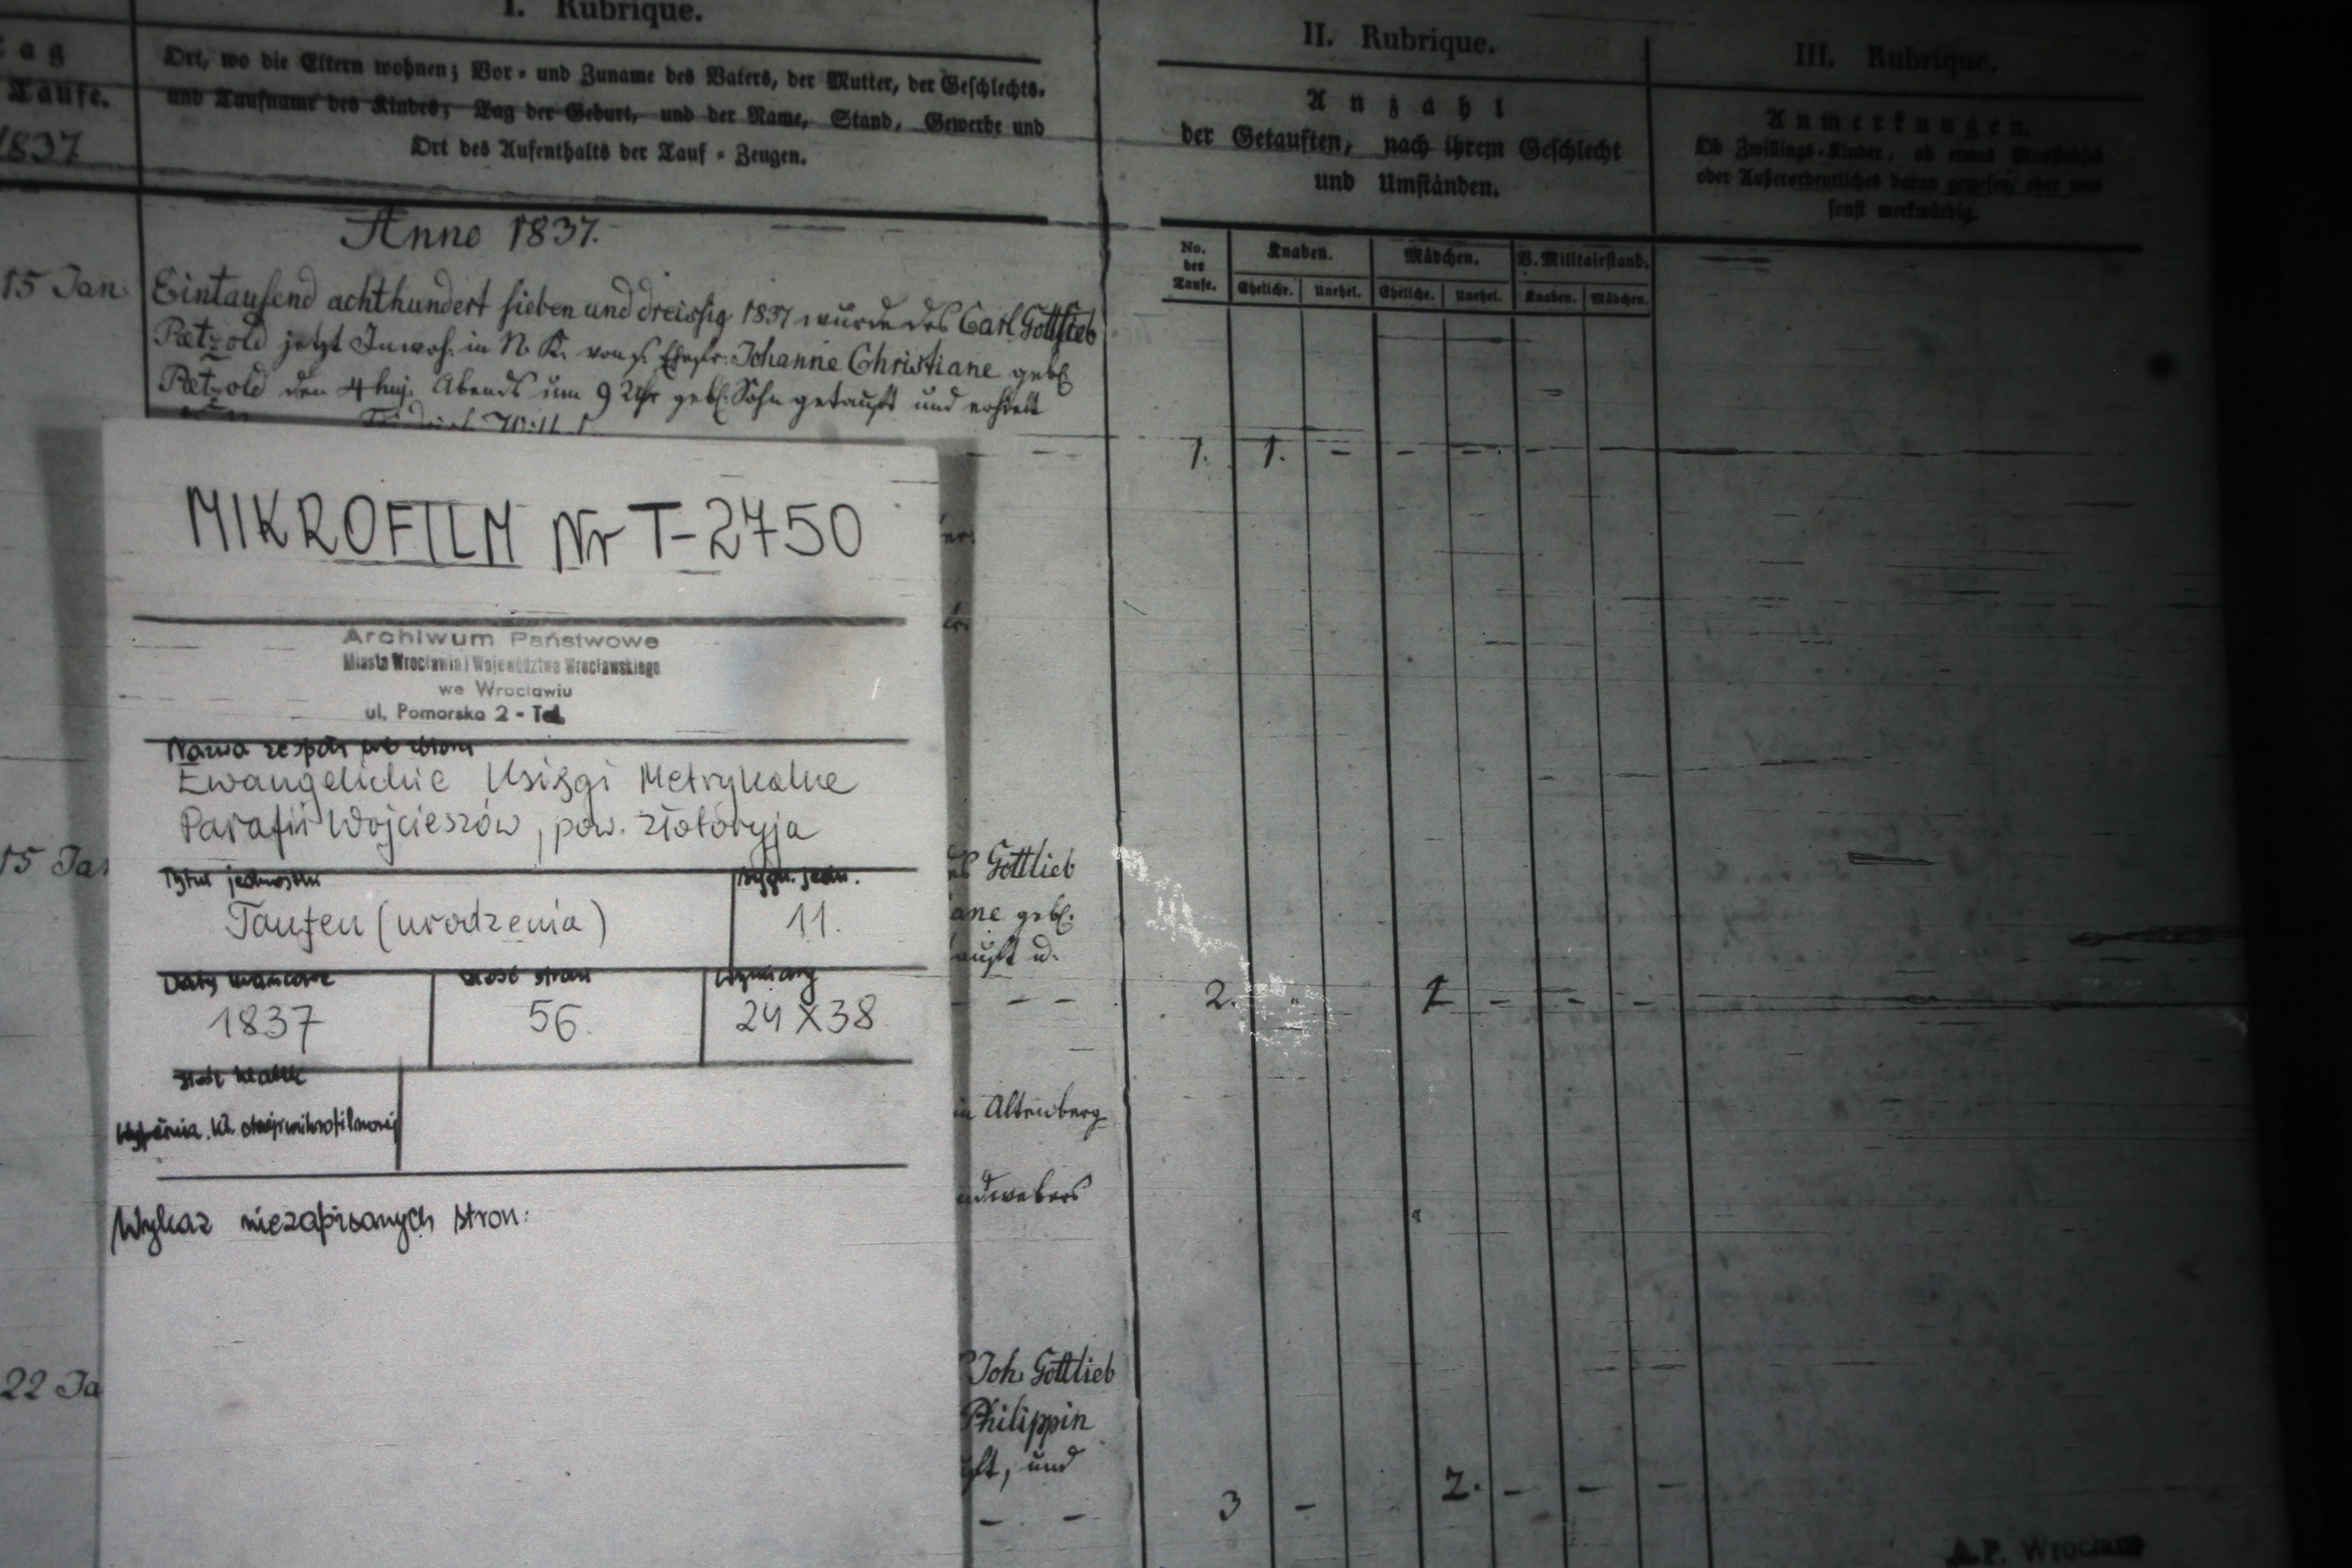 I. Rubrique.
Tag
Taufe.
1837
Ort, wo die Eltern wohnen; Vor- und Zuname des Vaters, der Mutter, der Geschlechts-
und Taufname des Kindes; Tag der Geburt, und der Name, Stand, Gewerbe und
Ort des Aufenthalts der Tauf-Zeugen.
II. Rubrique.
Anzahl
der Getauften, nach ihrem Geschlecht
und Umständen.
III. Rubrique.
Anmerkungen.
Ob Zwillings-Kinder, ob etwas
oder Außerordentliches daran gewesen, oder was
sonst merkwürdig.
No. der Taufe.
Knaben.
Mädchen.
V. Militairstand.
Ehelichr. Unehel. Eheliche. Unehel. Knaben. Mädchen.
Anno 1837.
15 Jan. Eintausend achthundert sieben und dreissig 1837 wurde des Carl Gottlieb
Pætzold jetzt Inwoh. in N. K. von s. Ehefr. Johanne Christiane geb.
Pætzold den 4 huj. Abends um 9 Uhr geb. Sohn getauft und erhielt
1. 1. - - - -
MIKROFILM Nr T-2750
Archiwum Państwowe
Miasta Wrocławia i Województwa Wrocławskiego
we Wrocławiu
ul. Pomorska 2 - Tel.
Nazwa zespołu lub zbioru
Ewangelickie Księgi Metrykalne
Parafii Wojcieszów, pow. Złotoryja
Tytuł jednostki
Sygn. jedn.
Taufen (urodzenia)
11.
Daty krańcowe
Ilość stron
Wymiary
1837
56.
24 X 38
Ilość klatek
Wykaz niezapisanych stron:
15 Ja
Gottlieb
ane geb.
auft u.
2. 1 - - -
in Altenberg
ndwebers
22 Ja
Joh. Gottlieb
Philippin
und
3 - 2. - - -
A.P. Wrocław